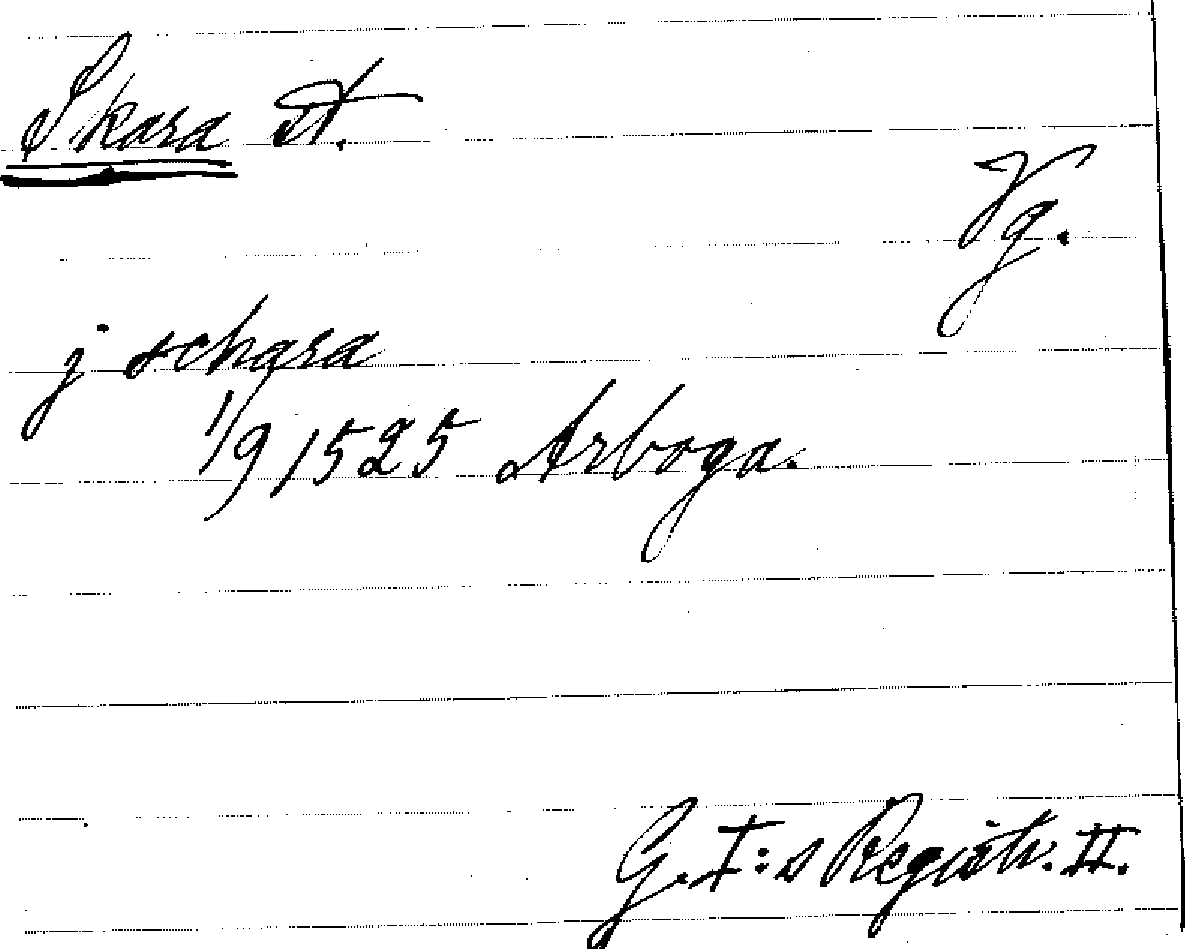 Skara st.
Vg.
j schara
1/9 1525 Arboga.
G. I:s Registr. II.